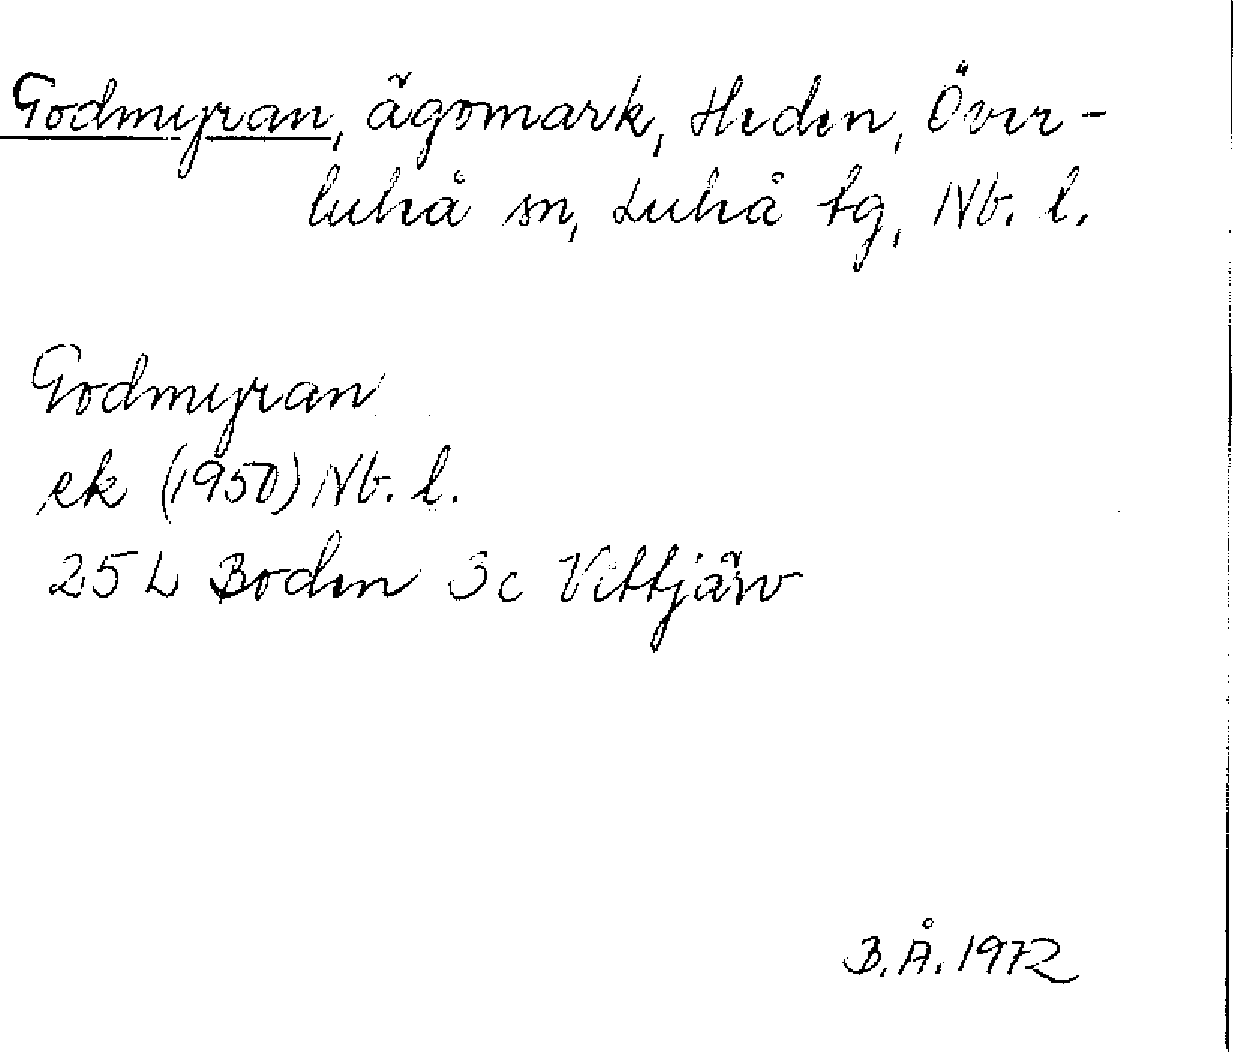 Godmyran, ägomark, Heden, Över-
luleå sn, Luleå tg, Nb. l.
Godmyran
ek (1950) Nb. l.
25 L Boden 3c Vittjärv
B.Å. 1972